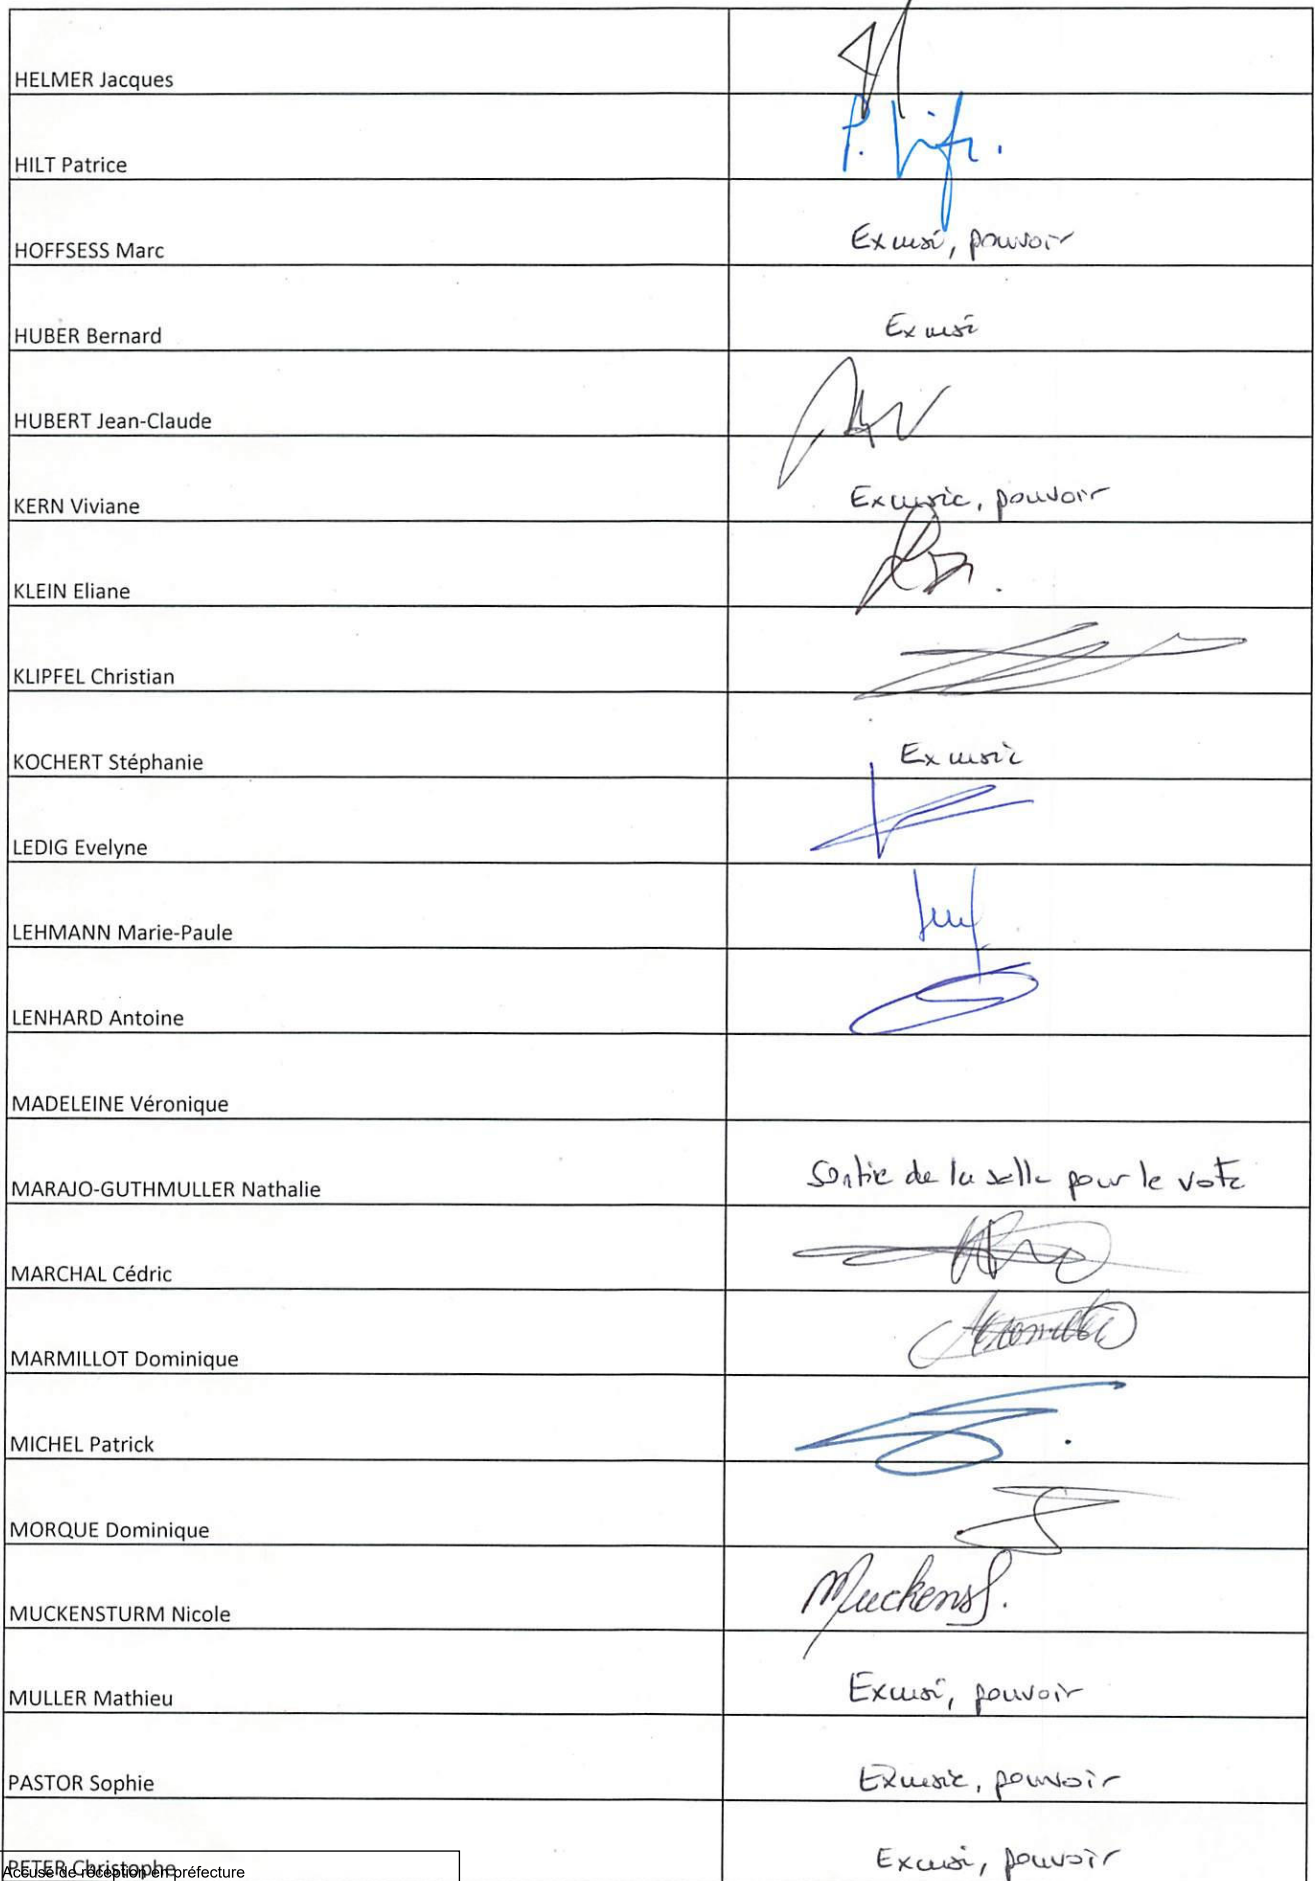 HELMER Jacques
HILT Patrice
P. Hilt.
HOFFSESS Marc
Excusé, pouvoir
HUBER Bernard
Excusé
HUBERT Jean-Claude
KERN Viviane
Excusée, pouvoir
KLEIN Eliane
KLIPFEL Christian
KOCHERT Stéphanie
Excusée
LEDIG Evelyne
LEHMANN Marie-Paule
LENHARD Antoine
MADELEINE Véronique
MARAJO-GUTHMULLER Nathalie
Sortie de la salle pour le vote
MARCHAL Cédric
MARMILLOT Dominique
MICHEL Patrick
MORQUE Dominique
MUCKENSTURM Nicole
MULLER Mathieu
Excusé, pouvoir
PASTOR Sophie
Excusée, pouvoir
PETER Christophe
Excusé, pouvoir
Accusé de réception en préfecture